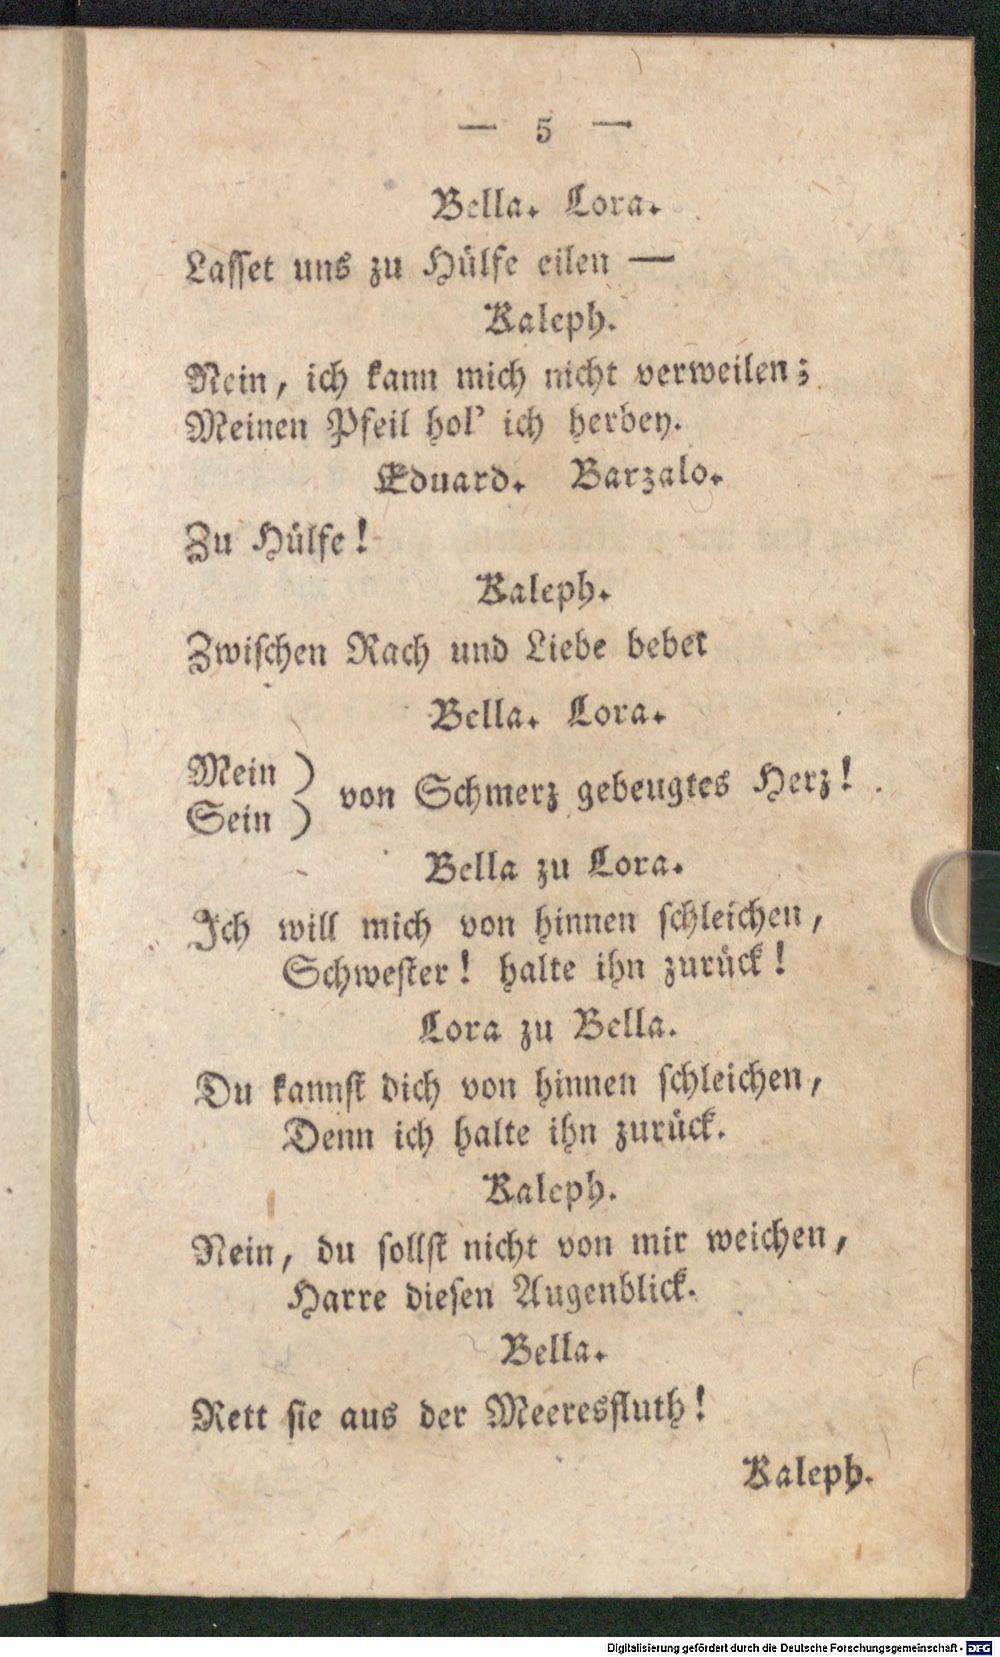 — 5 —
Bella. Lora.
Lasset uns zu Hülfe eilen —
Kaleph.
Nein, ich kann mich nicht verweilen;
Meinen Pfeil hol' ich herbey.
Eduard. Barzalo.
Zu Hülfe!
Kaleph.
Zwischen Rach und Liebe bebet
Bella. Lora.
Mein )
Sein ) von Schmerz gebeugtes Herz!
Bella zu Lora.
Ich will mich von hinnen schleichen,
Schwester! halte ihn zurück!
Lora zu Bella.
Du kannst dich von hinnen schleichen,
Denn ich halte ihn zurück.
Kaleph.
Nein, du sollst nicht von mir weichen,
Harre diesen Augenblick.
Bella.
Rett sie aus der Meeresfluth!
Kaleph.
Digitalisierung gefördert durch die Deutsche Forschungsgemeinschaft - DFG